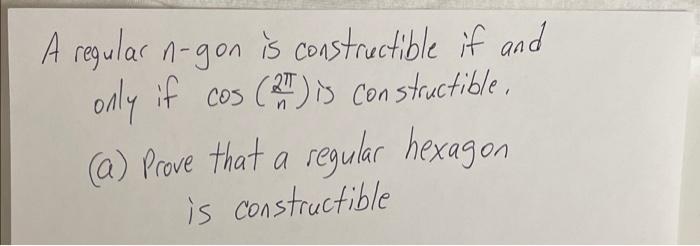 A regular n-gon is constructible if and
only if cos (2π/n) is constructible.
(a) Prove that a regular hexagon
is constructible